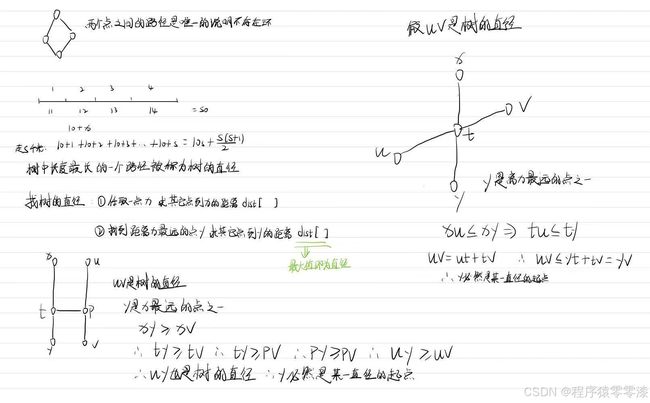 两个点之间的路径是唯一的说明不存在环
1 2 3 4
11 12 13 14 =50
10+x
走s千米 10+1+10+2+10+3+...+10+s = 10s+ s(s+1)/2
树中长度最长的一个路径被称为树的直径
找树的直径: ① 任取一点x 求其它点到x的距离 dist[ ]
② 找到距离x最远的点y 求其它点到y的距离 dist[ ]
最大值即为直径
x u
t p
y v
uv是树的直径
y是x最远的点之一
xy ≥ xv
∴ ty ≥ tv ∴ ty ≥ pv ∴ py ≥ pv ∴ uy ≥ uv
∴ uy也是树的直径 ∴ y必然是某一直径的起点
假uv是树的直径
x
v
t
u
y
y是离x最远的点之一
xu ≤ xy ⇒ tu ≤ ty
uv = ut+tv ∴ uv ≤ yt+tv = yv
∴ y必然是某一直径的起点
CSDN @程序猿零零漆